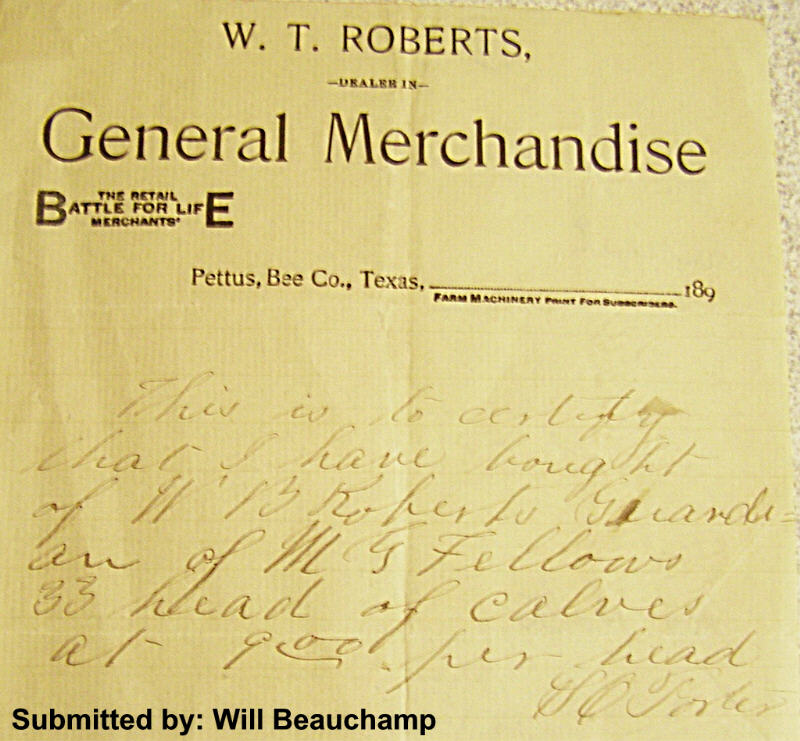 W. T. ROBERTS,
—DEALER IN—
General Merchandise
THE RETAIL
BATTLE FOR LIFE
MERCHANTS'
Pettus, Bee Co., Texas, 189
FARM MACHINERY PRINT FOR SUBSCRIBERS.
This is to certify
that I have bought
of W B Roberts Guardi=
an of M G Fellows
33 head of calves
at 9.00 per head
Porter
Submitted by: Will Beauchamp